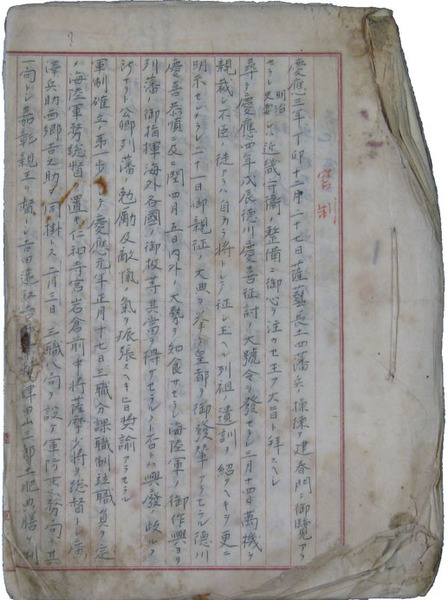 官制
慶應三年丁卯十二月二十七日薩藝長土四藩兵ノ操練ヲ建春門ニ御覧アラ
セラレ明治史要以テ近畿守衛ノ整備ニ御心ヲ注カセ玉フ大旨ト拜スヘシ
尋テ慶應四年戊辰徳川慶喜征討ノ大號令ヲ發セラレ三月十四日萬機ヲ
親裁シ不臣ノ徒アラハ自カラ將トシテ征シ玉ヘル列祖ノ遺訓ヲ紹クヘキヲ更ニ
明示セサセラレ二十一日御親征ノ大典ヲ擧ケ皇都ヲ御發輦アラセラル徳川
慶喜恭順ニ及ヒ閏四月五日内外ノ大勢ヲ知食サセラレ海陸軍ノ御作興ヨリ
列藩ノ御指揮海外各國ノ御扱等其當ヲ得サセラルルト否トハ興發ノ岐ルル
所ナリト公卿列藩ノ勉勵及敵愾ノ氣ヲ振張スヘキ旨奬諭アラセラル
軍制確立ノ第一歩トシテ慶應元年正月十七日三職分課職制竝職員ヲ定
メ海陸軍務總督ヲ置キ仁和寺宮岩倉前中將薩摩少將ヲ總督トシ廣
澤兵助西郷吉之助ヲ同掛トス二月三日三職八局ヲ設ケ軍防事務局ヲ其
一局トシ嘉彰親王ヲ督トシ吉田遠江